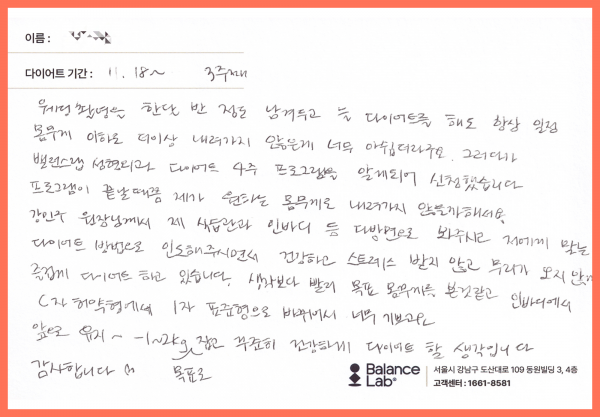 이름 :
다이어트 기간 : 11. 18 ~ 3주째
웨딩촬영을 한달 반 정도 남겨두고 늘 다이어트를 해도 항상 일정
몸무게 이하로 더이상 내려가지 않는게 너무 아쉽더라구요. 그러다가
밸런스랩 성형외과 다이어트 4주 프로그램을 알게되어 신청했습니다
프로그램이 끝날때쯤 제가 원하는 몸무게로 내려가지 않을까해서요
강인주 원장님께서 제 식습관과 인바디 등 다방면으로 봐주시고 저에게 맞는
다이어트 방법으로 인도해주시면서 건강하고 스트레스 받지 않고 무리가 오지 않게
즐겁게 다이어트 하고 있습니다. 생각보다 빨리 목표 몸무게를 본것같고 인바디에서
C자 허약형에서 I자 표준형으로 바뀌어서 너무 기쁘고요
앞으로 유지 ~ -1~2kg 잡고 꾸준히 건강하게 다이어트 할 생각입니다
감사합니다 목표로
Balance Lab®
서울시 강남구 도산대로 109 동원빌딩 3, 4층
고객센터 : 1661-8581